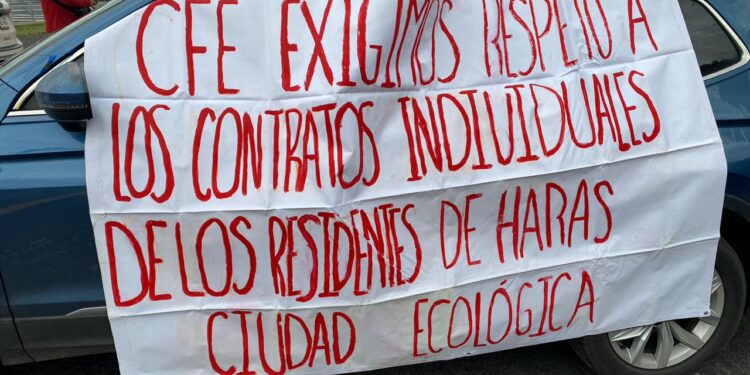 CFE EXIGIMOS RESPETO A
LOS CONTRATOS INDIVIDUALES
DE LOS RESIDENTES DE HARAS
CIUDAD ECOLÓGICA